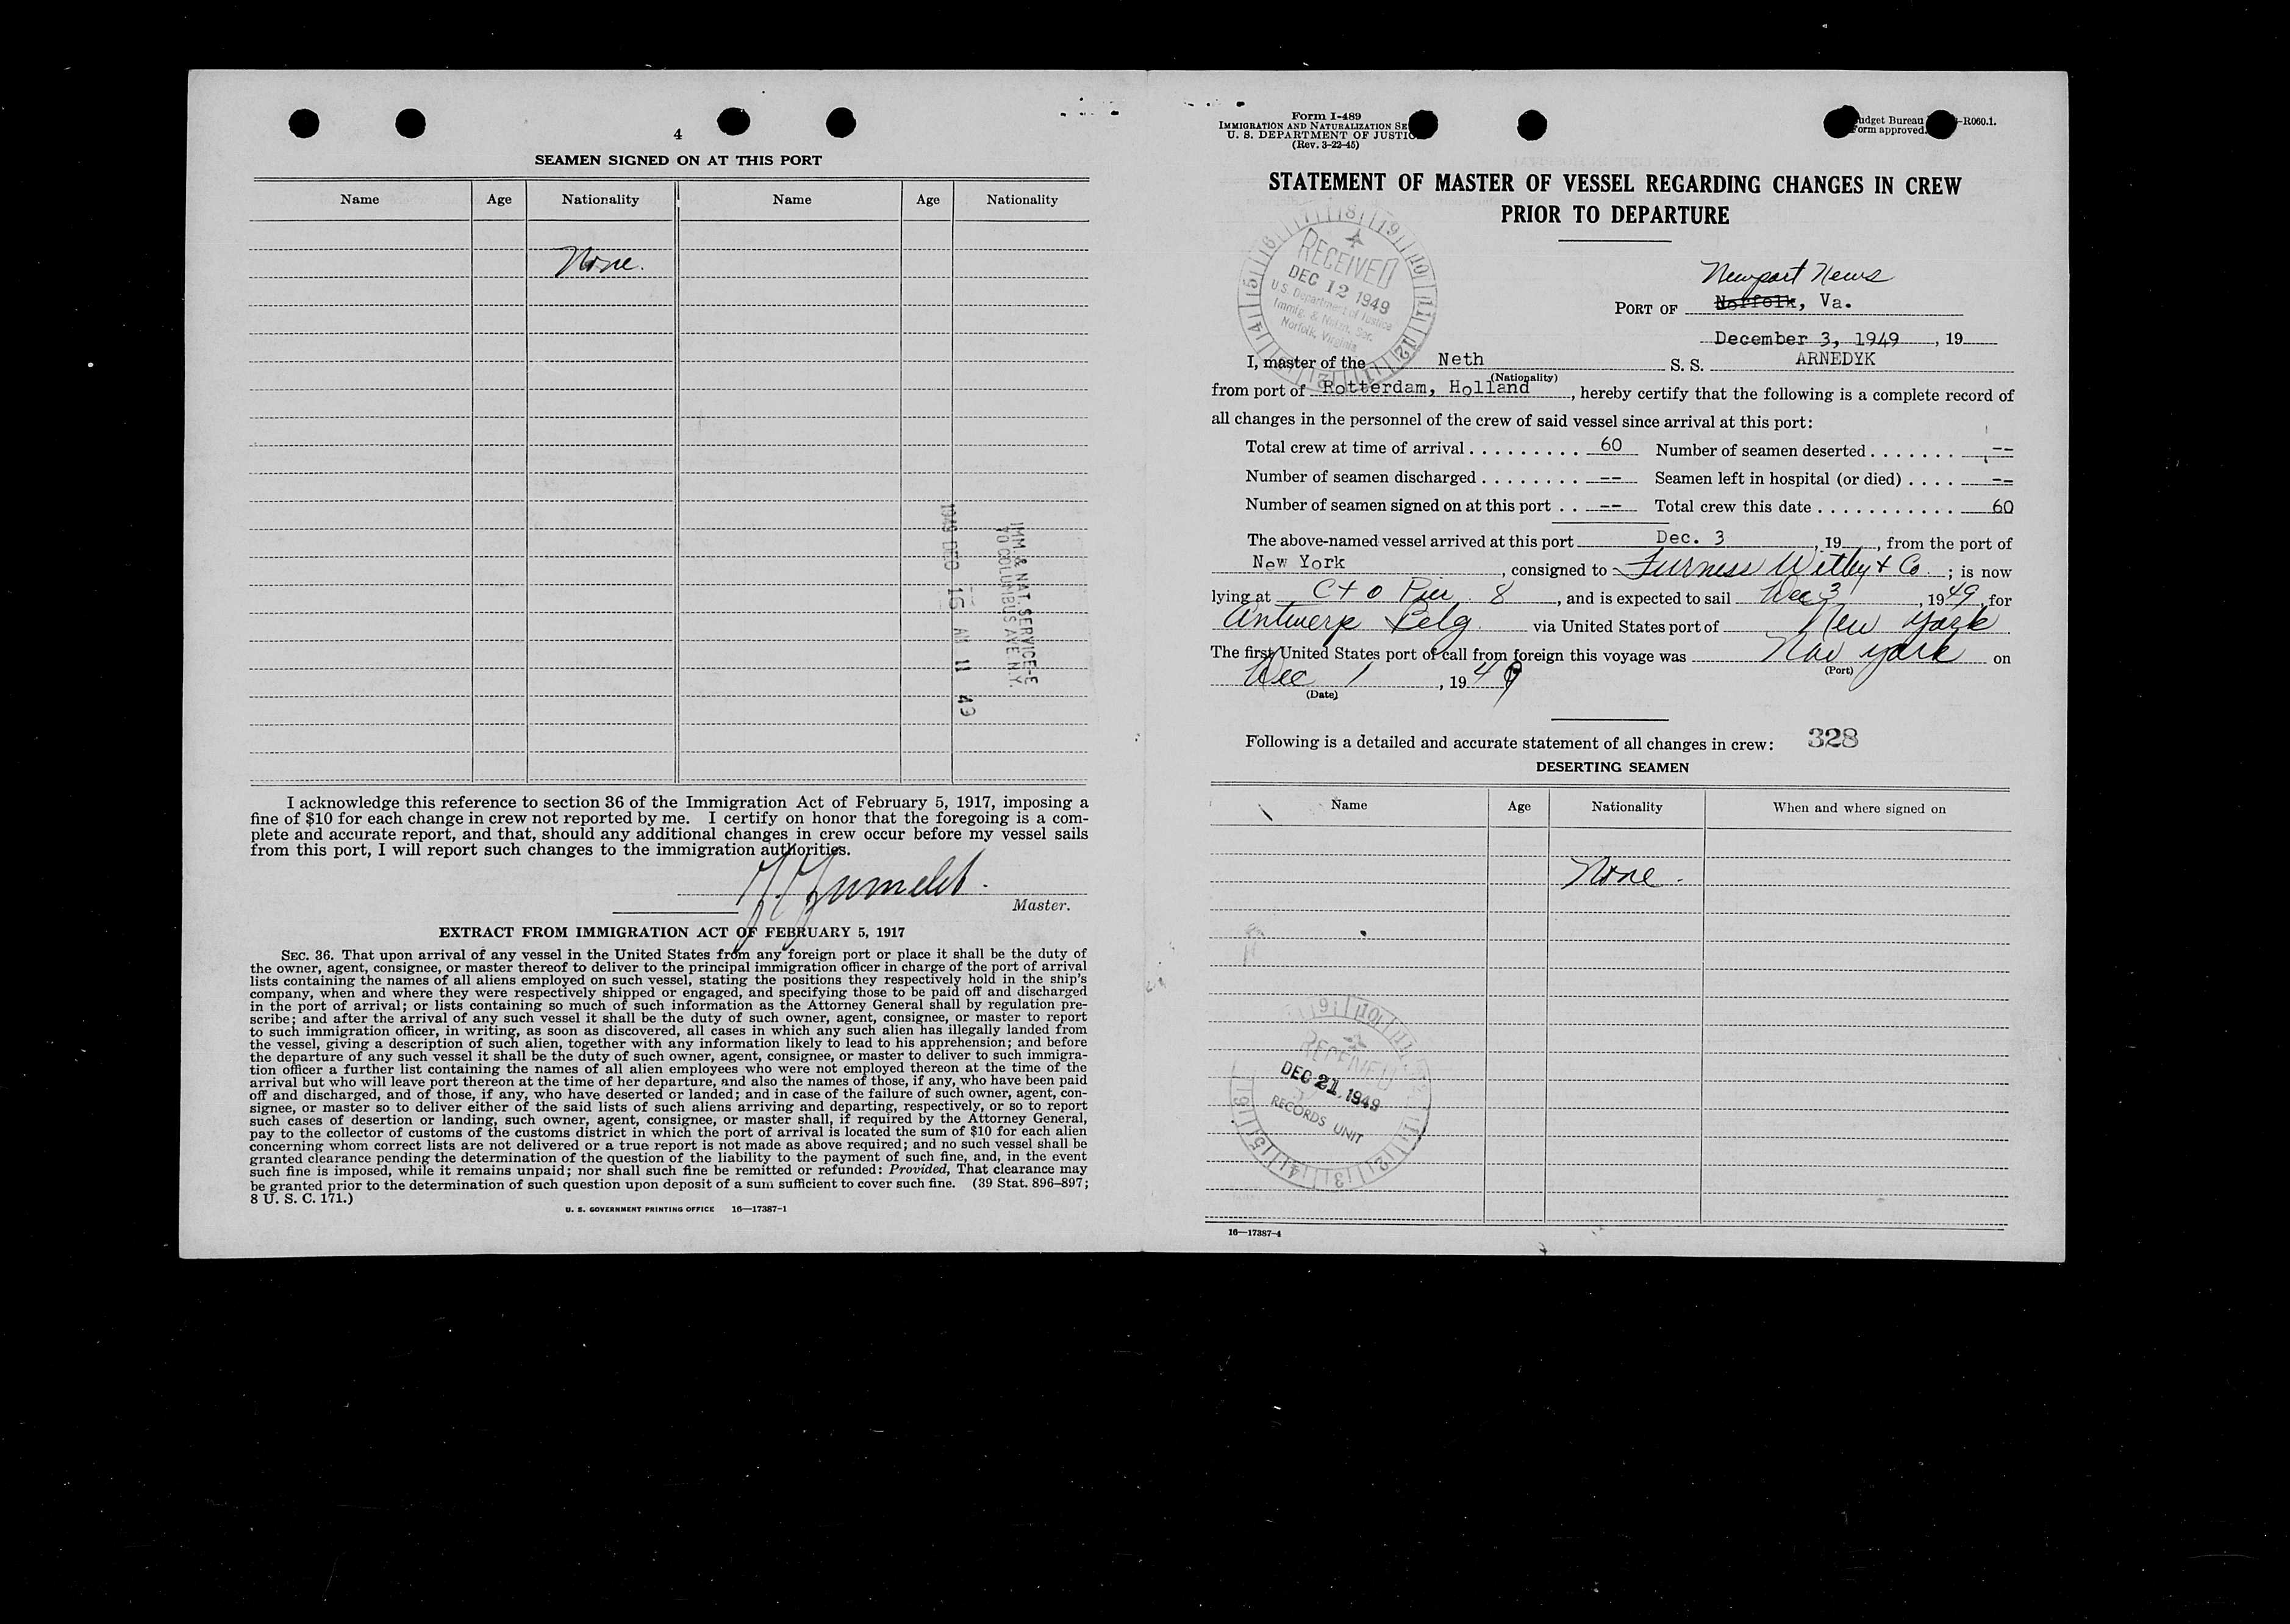 4
SEAMEN SIGNED ON AT THIS PORT
Name Age Nationality Name Age Nationality
None.
IMM. & NAT. SERVICE-E
70 COLUMBUS AVE N.Y.
1949 DEC 15 AM 11 49
I acknowledge this reference to section 36 of the Immigration Act of February 5, 1917, imposing a
fine of $10 for each change in crew not reported by me. I certify on honor that the foregoing is a com-
plete and accurate report, and that, should any additional changes in crew occur before my vessel sails
from this port, I will report such changes to the immigration authorities.
Master.
EXTRACT FROM IMMIGRATION ACT OF FEBRUARY 5, 1917
SEC. 36. That upon arrival of any vessel in the United States from any foreign port or place it shall be the duty of
the owner, agent, consignee, or master thereof to deliver to the principal immigration officer in charge of the port of arrival
lists containing the names of all aliens employed on such vessel, stating the positions they respectively hold in the ship's
company, when and where they were respectively shipped or engaged, and specifying those to be paid off and discharged
in the port of arrival; or lists containing so much of such information as the Attorney General shall by regulation pre-
scribe; and after the arrival of any such vessel it shall be the duty of such owner, agent, consignee, or master to report
to such immigration officer, in writing, as soon as discovered, all cases in which any such alien has illegally landed from
the vessel, giving a description of such alien, together with any information likely to lead to his apprehension; and before
the departure of any such vessel it shall be the duty of such owner, agent, consignee, or master to deliver to such immigra-
tion officer a further list containing the names of all alien employees who were not employed thereon at the time of the
arrival but who will leave port thereon at the time of her departure, and also the names of those, if any, who have been paid
off and discharged, and of those, if any, who have deserted or landed; and in case of the failure of such owner, agent, con-
signee, or master so to deliver either of the said lists of such aliens arriving and departing, respectively, or so to report
such cases of desertion or landing, such owner, agent, consignee, or master shall, if required by the Attorney General,
pay to the collector of customs of the customs district in which the port of arrival is located the sum of $10 for each alien
concerning whom correct lists are not delivered or a true report is not made as above required; and no such vessel shall be
granted clearance pending the determination of the question of the liability to the payment of such fine, and, in the event
such fine is imposed, while it remains unpaid; nor shall such fine be remitted or refunded: Provided, That clearance may
be granted prior to the determination of such question upon deposit of a sum sufficient to cover such fine. (39 Stat. 896–897;
8 U. S. C. 171.)
U. S. GOVERNMENT PRINTING OFFICE 16—17387-1
Form I-489
IMMIGRATION AND NATURALIZATION SE
U. S. DEPARTMENT OF JUSTIC
(Rev. 3-22-45)
udget Bureau -R060.1.
orm approved.
STATEMENT OF MASTER OF VESSEL REGARDING CHANGES IN CREW
PRIOR TO DEPARTURE
RECEIVED
DEC 12 1949
U.S. Department of Justice
Immig. & Natzn. Ser.
Norfolk, Virginia
Newport News
PORT OF Norfolk, Va.
December 3, 1949, 19
I, master of the Neth S. S. ARNEDYK
(Nationality)
from port of Rotterdam, Holland, hereby certify that the following is a complete record of
all changes in the personnel of the crew of said vessel since arrival at this port:
Total crew at time of arrival . . . . . . . . . 60 Number of seamen deserted . . . . . . . --
Number of seamen discharged . . . . . . . . -- Seamen left in hospital (or died) . . . . --
Number of seamen signed on at this port . . -- Total crew this date . . . . . . . . . . . 60
The above-named vessel arrived at this port Dec. 3, 19, from the port of
New York, consigned to Furness Witby & Co.; is now
lying at C + O Pier 8, and is expected to sail Dec 3, 1949, for
Antwerp Belg. via United States port of New York
The first United States port of call from foreign this voyage was New York on
(Port)
Dec 1, 1949
(Date)
Following is a detailed and accurate statement of all changes in crew: 328
DESERTING SEAMEN
Name Age Nationality When and where signed on
None.
RECEIVED
DEC 21 1949
RECORDS UNIT
16—17387-4